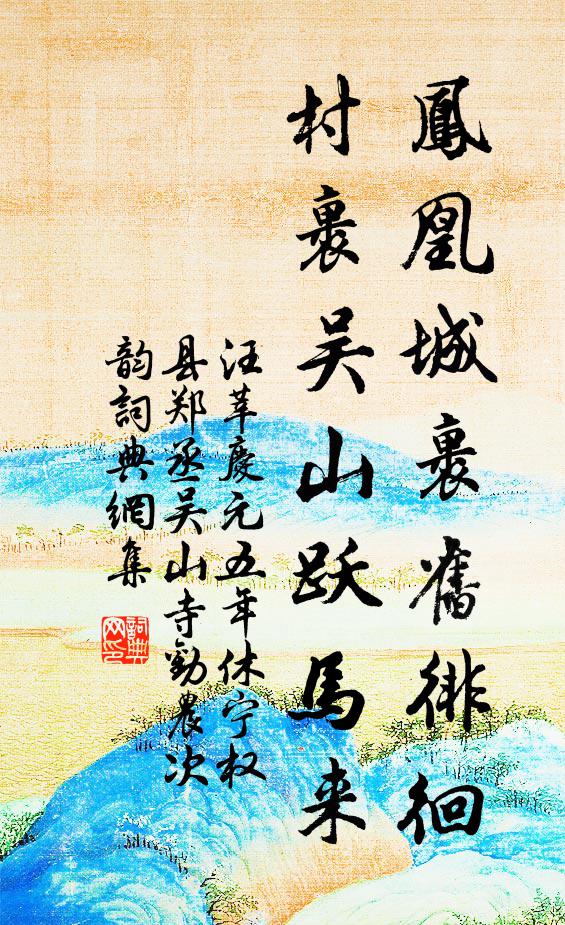 鳳凰城裏舊徘徊
村裏吴山跃馬来
汪莘慶元五年休宁权
县郑丞吴山寺勸農次
韵詞典網集